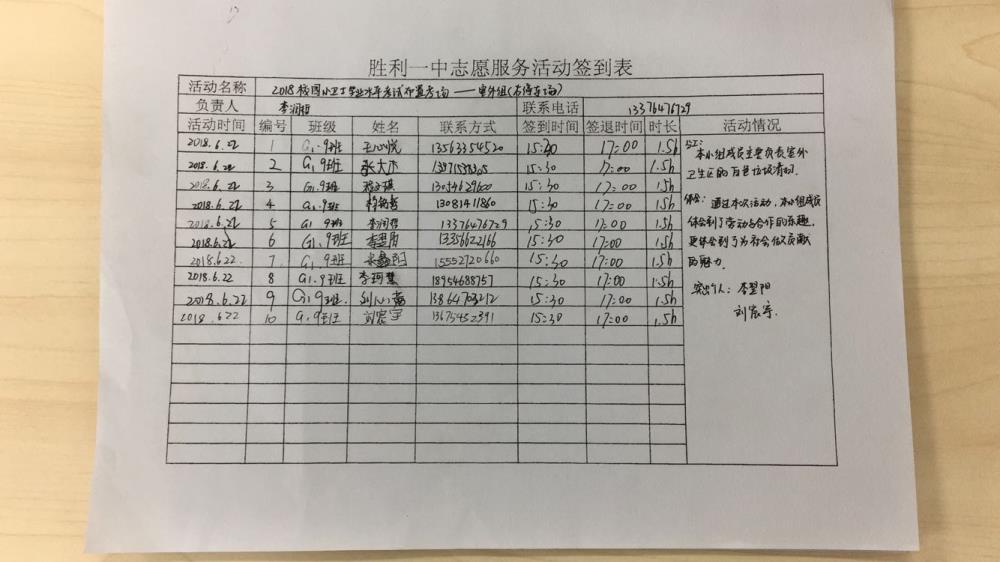 胜利一中志愿服务活动签到表
活动名称 2018校园小卫士学业水平考试布置考场——室外组(右停车场)
负责人 李润哲 联系电话 13376476729
活动时间 编号 班级 姓名 联系方式 签到时间 签退时间 时长 活动情况
2018.6.22 1 G1.9班 王心悦 13563354520 15:30 17:00 1.5h
2018.6.22 2 G1.9班 张大 15:30 17:00 1.5h
2018.6.22 3 G1.9班 13054629600 15:30 17:00 1.5h
2018.6.22 4 G1.9班 13081411860 15:30 17:00 1.5h
2018.6.22 5 G1 9班 李润哲 13376476729 15:30 17:00 1.5h
2018.6.22 6 G1.9班 李翌阳 13356622166 15:30 17:00 1.5h
2018.6.22. 7 G1.9班 15552720660 15:30 17:00 1.5h
2018.6.22 8 G1.9班 李珂慧 18954688757 15:30 17:00 1.5h
2018.6.22 9 G1.9班. 刘心 13864703212 15:30 17:00 1.5h
2018.6.22 10 G1.9班 刘宸宇 13675452391 15:30 17:00 1.5h
分工:
本小组成员主要负责室外
卫生区的百草垃圾清扫.
体会: 通过本次活动,本小组成员
体会到了劳动与合作的乐趣,
更体会到了为社会做贡献
的魅力.
突出个人: 李翌阳
刘宸宇.